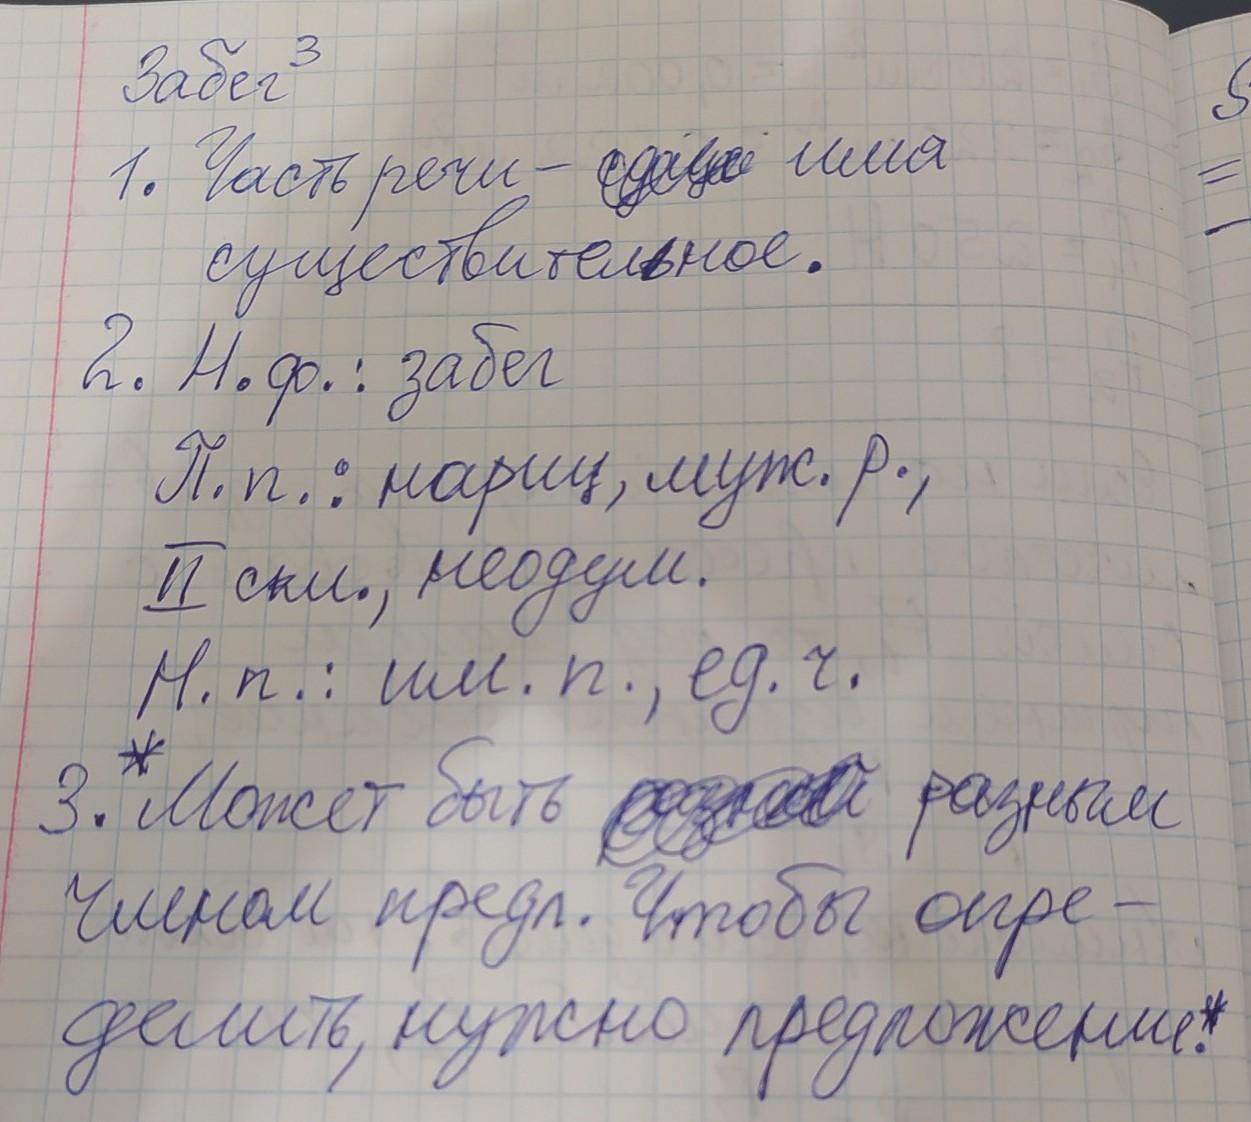 Забег³
1. Часть речи – имя
существительное.
2. Н.ф.: забег
П.п.: нариц, муж. р.,
II скл., неодуш.
Н.п.: им. п., ед. ч.
3.*Может быть разным
членом предл. Чтобы опре-
делить, нужно предложение.*